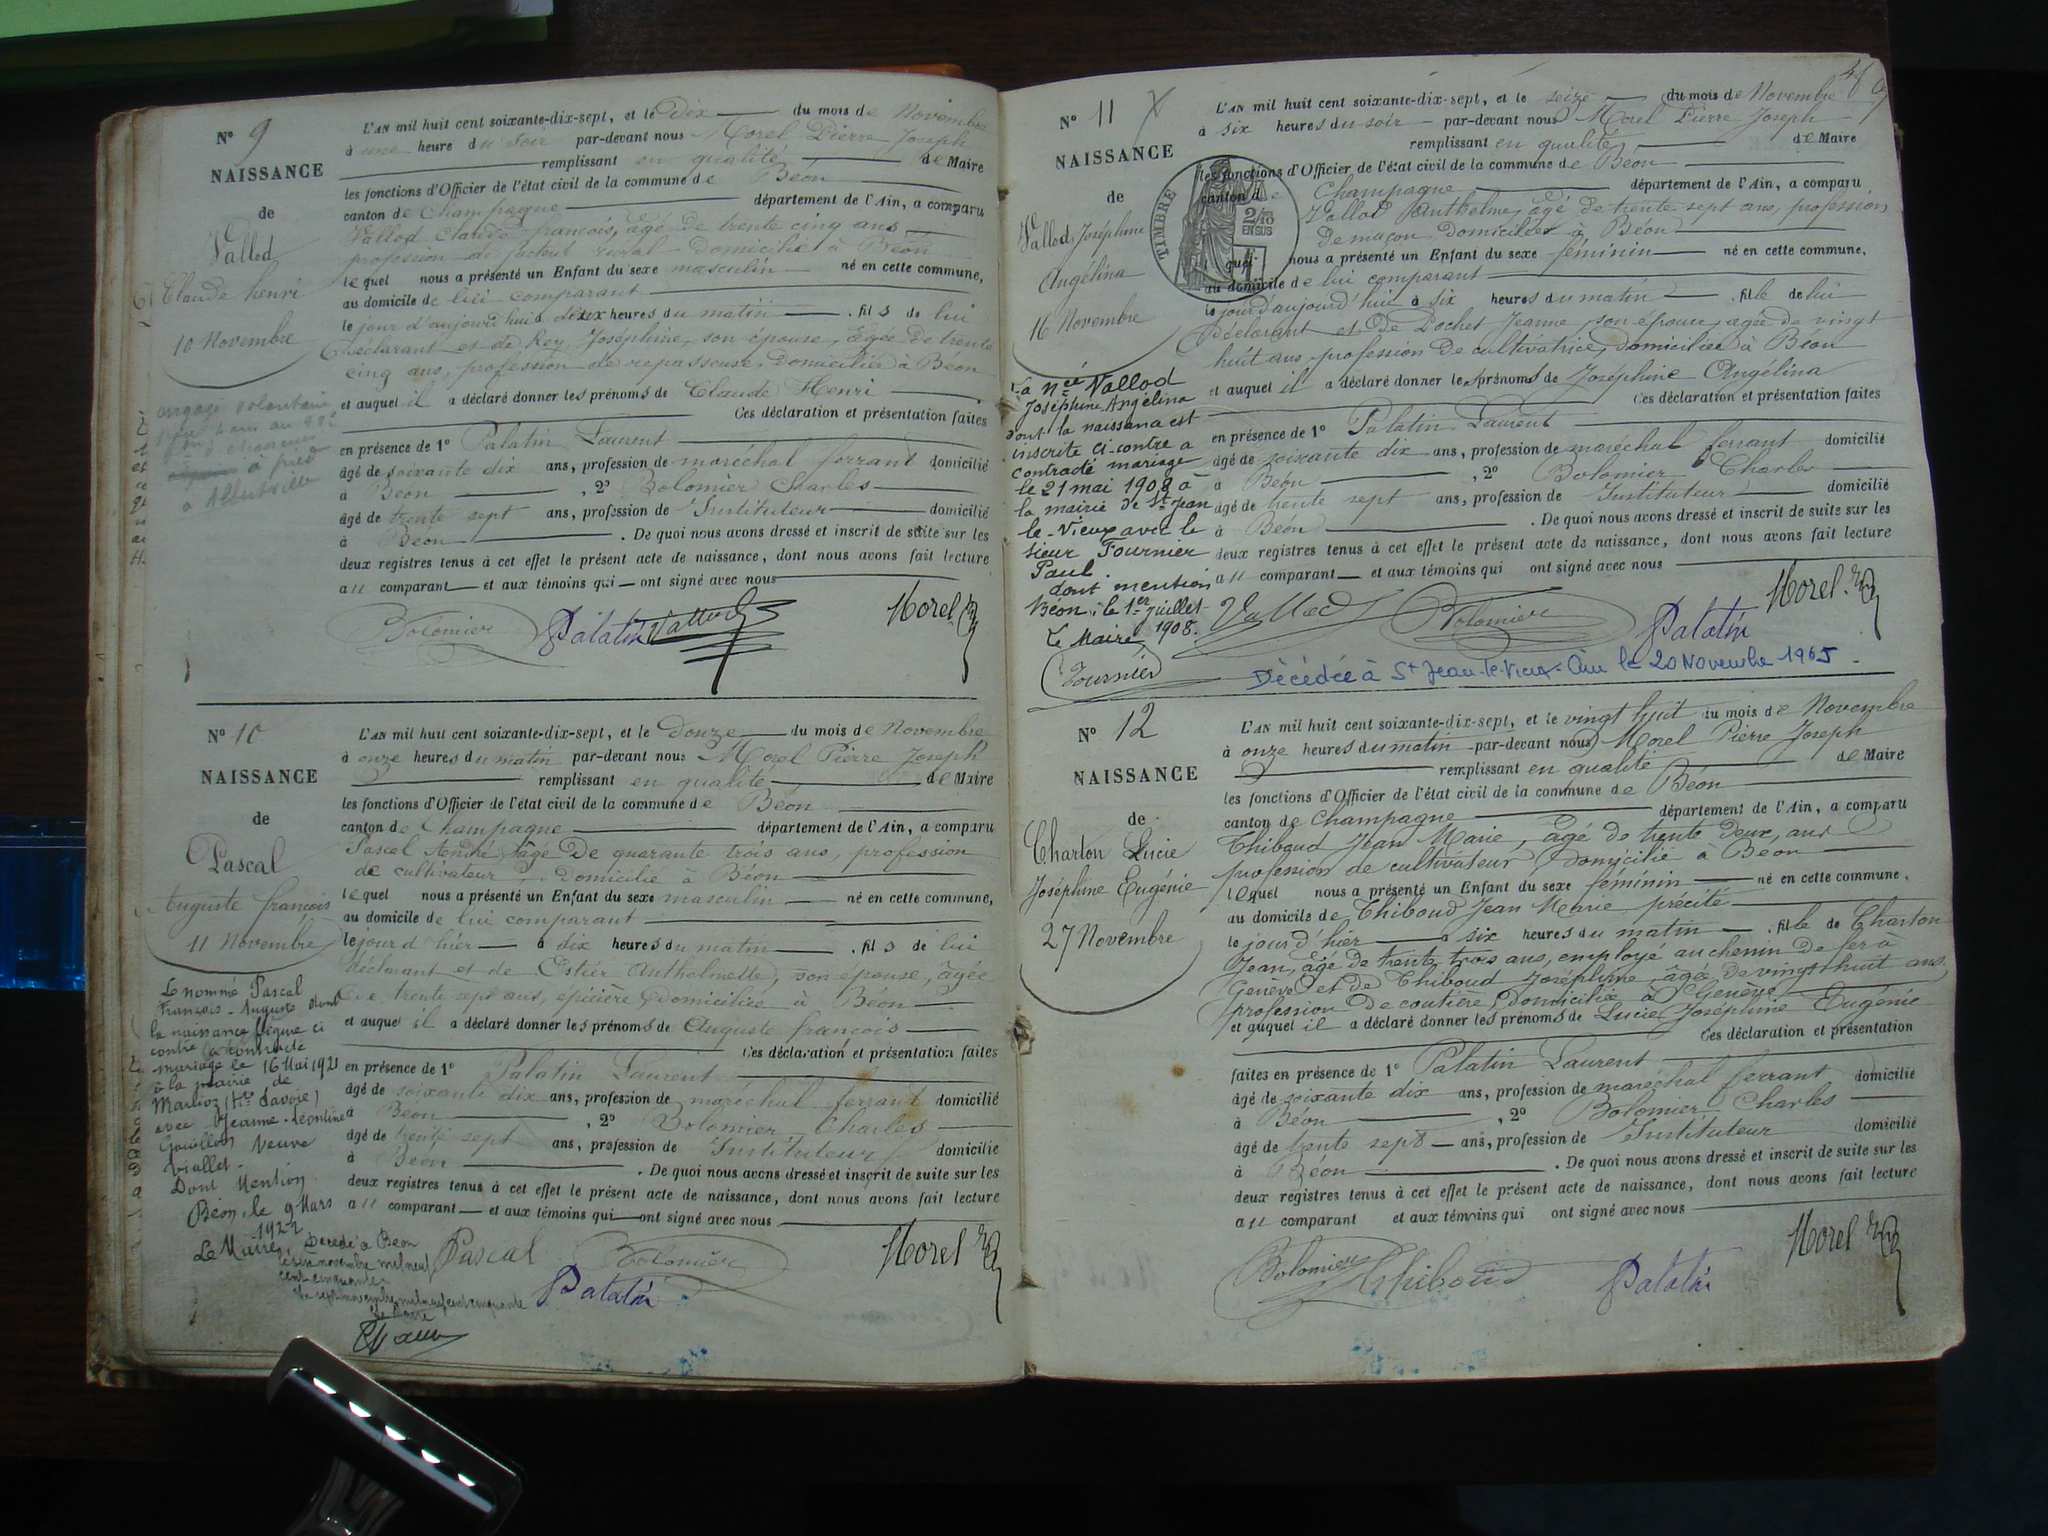 N° 9
NAISSANCE
de
Vallod
Claude henri
10 Novembre
engagé volontaire
à Albertville
L'AN mil huit cent soixante-dix-sept, et le Dix du mois de Novembre
à une heure du soir par-devant nous Morel Pierre Joseph
remplissant en qualité de Maire
les fonctions d'Officier de l'état civil de la commune de Béon
canton de Champagne département de l'Ain, a comparu
Vallod Claude françois, âgé de trente cinq ans
profession de facteur rural domicilié à Béon
lequel nous a présenté un Enfant du sexe masculin né en cette commune,
au domicile de lui comparant
le jour d'aujourd'hui à deux heures du matin , fils de lui
déclarant et de Rey Joséphine, son épouse, âgée de trente
cinq ans, profession de repasseuse, domiciliée à Béon
et auquel il a déclaré donner les prénoms de Claude Henri
Ces déclaration et présentation faites
en présence de 1° Palatin Laurent
âgé de soixante dix ans, profession de maréchal ferrant domicilié
à Béon , 2° Bolomier Charles
âgé de trente sept ans, profession de Instituteur domicilié
à Béon . De quoi nous avons dressé et inscrit de suite sur les
deux registres tenus à cet effet le présent acte de naissance, dont nous avons fait lecture
au comparant et aux témoins qui ont signé avec nous
Bolomier Palatin Vallod Morel
N° 10
NAISSANCE
de
Pascal
Auguste françois
11 Novembre
Le nommé Pascal
François-Auguste dont
la naissance figure ci
contre a contracté
mariage le 16 Mai 1921
à la mairie de
Marlioz (Hte Savoie)
avec Jeanne-Léontine
veuve
Viallet.
Dont Mention
Béon, le 9 Mars
1922
Le Maire,
Décédé à Béon
le six novembre mil neuf
cent cinquante
le sept novembre mil neuf cent cinquante
Le Maire
L'AN mil huit cent soixante-dix-sept, et le Douze du mois de Novembre
à onze heures du matin par-devant nous Morel Pierre Joseph
remplissant en qualité de Maire
les fonctions d'Officier de l'état civil de la commune de Béon
canton de Champagne département de l'Ain, a comparu
Pascal André âgé de quarante trois ans, profession
de cultivateur, domicilié à Béon
lequel nous a présenté un Enfant du sexe masculin né en cette commune,
au domicile de lui comparant
le jour d'hier à dix heures du matin , fils de lui
déclarant et de Ostier Anthelmette, son épouse, âgée
de trente sept ans, épicière, domiciliée à Béon
et auquel il a déclaré donner les prénoms de Auguste françois
Ces déclaration et présentation faites
en présence de 1° Palatin Laurent
âgé de soixante dix ans, profession de maréchal ferrant domicilié
à Béon , 2° Bolomier Charles
âgé de trente sept ans, profession de Instituteur domicilié
à Béon . De quoi nous avons dressé et inscrit de suite sur les
deux registres tenus à cet effet le présent acte de naissance, dont nous avons fait lecture
au comparant et aux témoins qui ont signé avec nous
Pascal Bolomier Morel
Palatin
N° 11
NAISSANCE
de
Vallod Joséphine
Angélina
16 Novembre
La née Vallod
Joséphine Angélina
dont la naissance est
inscrite ci-contre a
contracté mariage
le 21 mai 1908 à
la mairie de St Jean
le-Vieux avec le
sieur Fournier
Paul.
dont mention
Béon, le 1er juillet
1908.
Le Maire
Fournier
TIMBRE
2/10
EN SUS
L'AN mil huit cent soixante-dix-sept, et le seize du mois de Novembre
à six heures du soir par-devant nous Morel Pierre Joseph
remplissant en qualité de Maire
les fonctions d'Officier de l'état civil de la commune de Béon
canton de Champagne département de l'Ain, a comparu
Vallod Anthelme, âgé de trente sept ans, profession
de maçon domicilié à Béon
lequel nous a présenté un Enfant du sexe féminin né en cette commune,
au domicile de lui comparant
le jour d'aujourd'hui à six heures du matin , fille de lui
déclarant et de Pochet Jeanne, son épouse, âgée de vingt
huit ans, profession de cultivatrice, domiciliée à Béon
et auquel il a déclaré donner les prénoms de Joséphine Angélina
Ces déclaration et présentation faites
en présence de 1° Palatin Laurent
âgé de soixante dix ans, profession de maréchal ferrant domicilié
à Béon , 2° Bolomier Charles
âgé de trente sept ans, profession de Instituteur domicilié
à Béon . De quoi nous avons dressé et inscrit de suite sur les
deux registres tenus à cet effet le présent acte de naissance, dont nous avons fait lecture
au comparant et aux témoins qui ont signé avec nous
Vallod Bolomier Palatin Morel
Décédée à St Jean-le-Vieux-Ain le 20 Novembre 1965.
N° 12
NAISSANCE
de
Charton Lucie
Joséphine Eugénie
27 Novembre
L'AN mil huit cent soixante-dix-sept, et le vingt huit du mois de Novembre
à onze heures du matin par-devant nous Morel Pierre Joseph
remplissant en qualité de Maire
les fonctions d'Officier de l'état civil de la commune de Béon
canton de Champagne département de l'Ain, a comparu
Thiboud Jean Marie, âgé de trente deux, ans
profession de cultivateur, domicilié à Béon
lequel nous a présenté un Enfant du sexe féminin né en cette commune,
au domicile de Thiboud Jean Marie précité
le jour d'hier à six heures du matin , fille de Charton
Jean, âgé de trente trois ans, employé au chemin de fer à
Genève et de Thiboud Joséphine âgée de vingt huit ans,
profession de coutière, domiciliée à Genève
et auquel il a déclaré donner les prénoms de Lucie Joséphine Eugénie
Ces déclaration et présentation
faites en présence de 1° Palatin Laurent
âgé de soixante dix ans, profession de maréchal ferrant domicilié
à Béon , 2° Bolomier Charles
âgé de trente sept ans, profession de Instituteur domicilié
à Béon . De quoi nous avons dressé et inscrit de suite sur les
deux registres tenus à cet effet le présent acte de naissance, dont nous avons fait lecture
au comparant et aux témoins qui ont signé avec nous
Bolomier Thiboud Palatin Morel